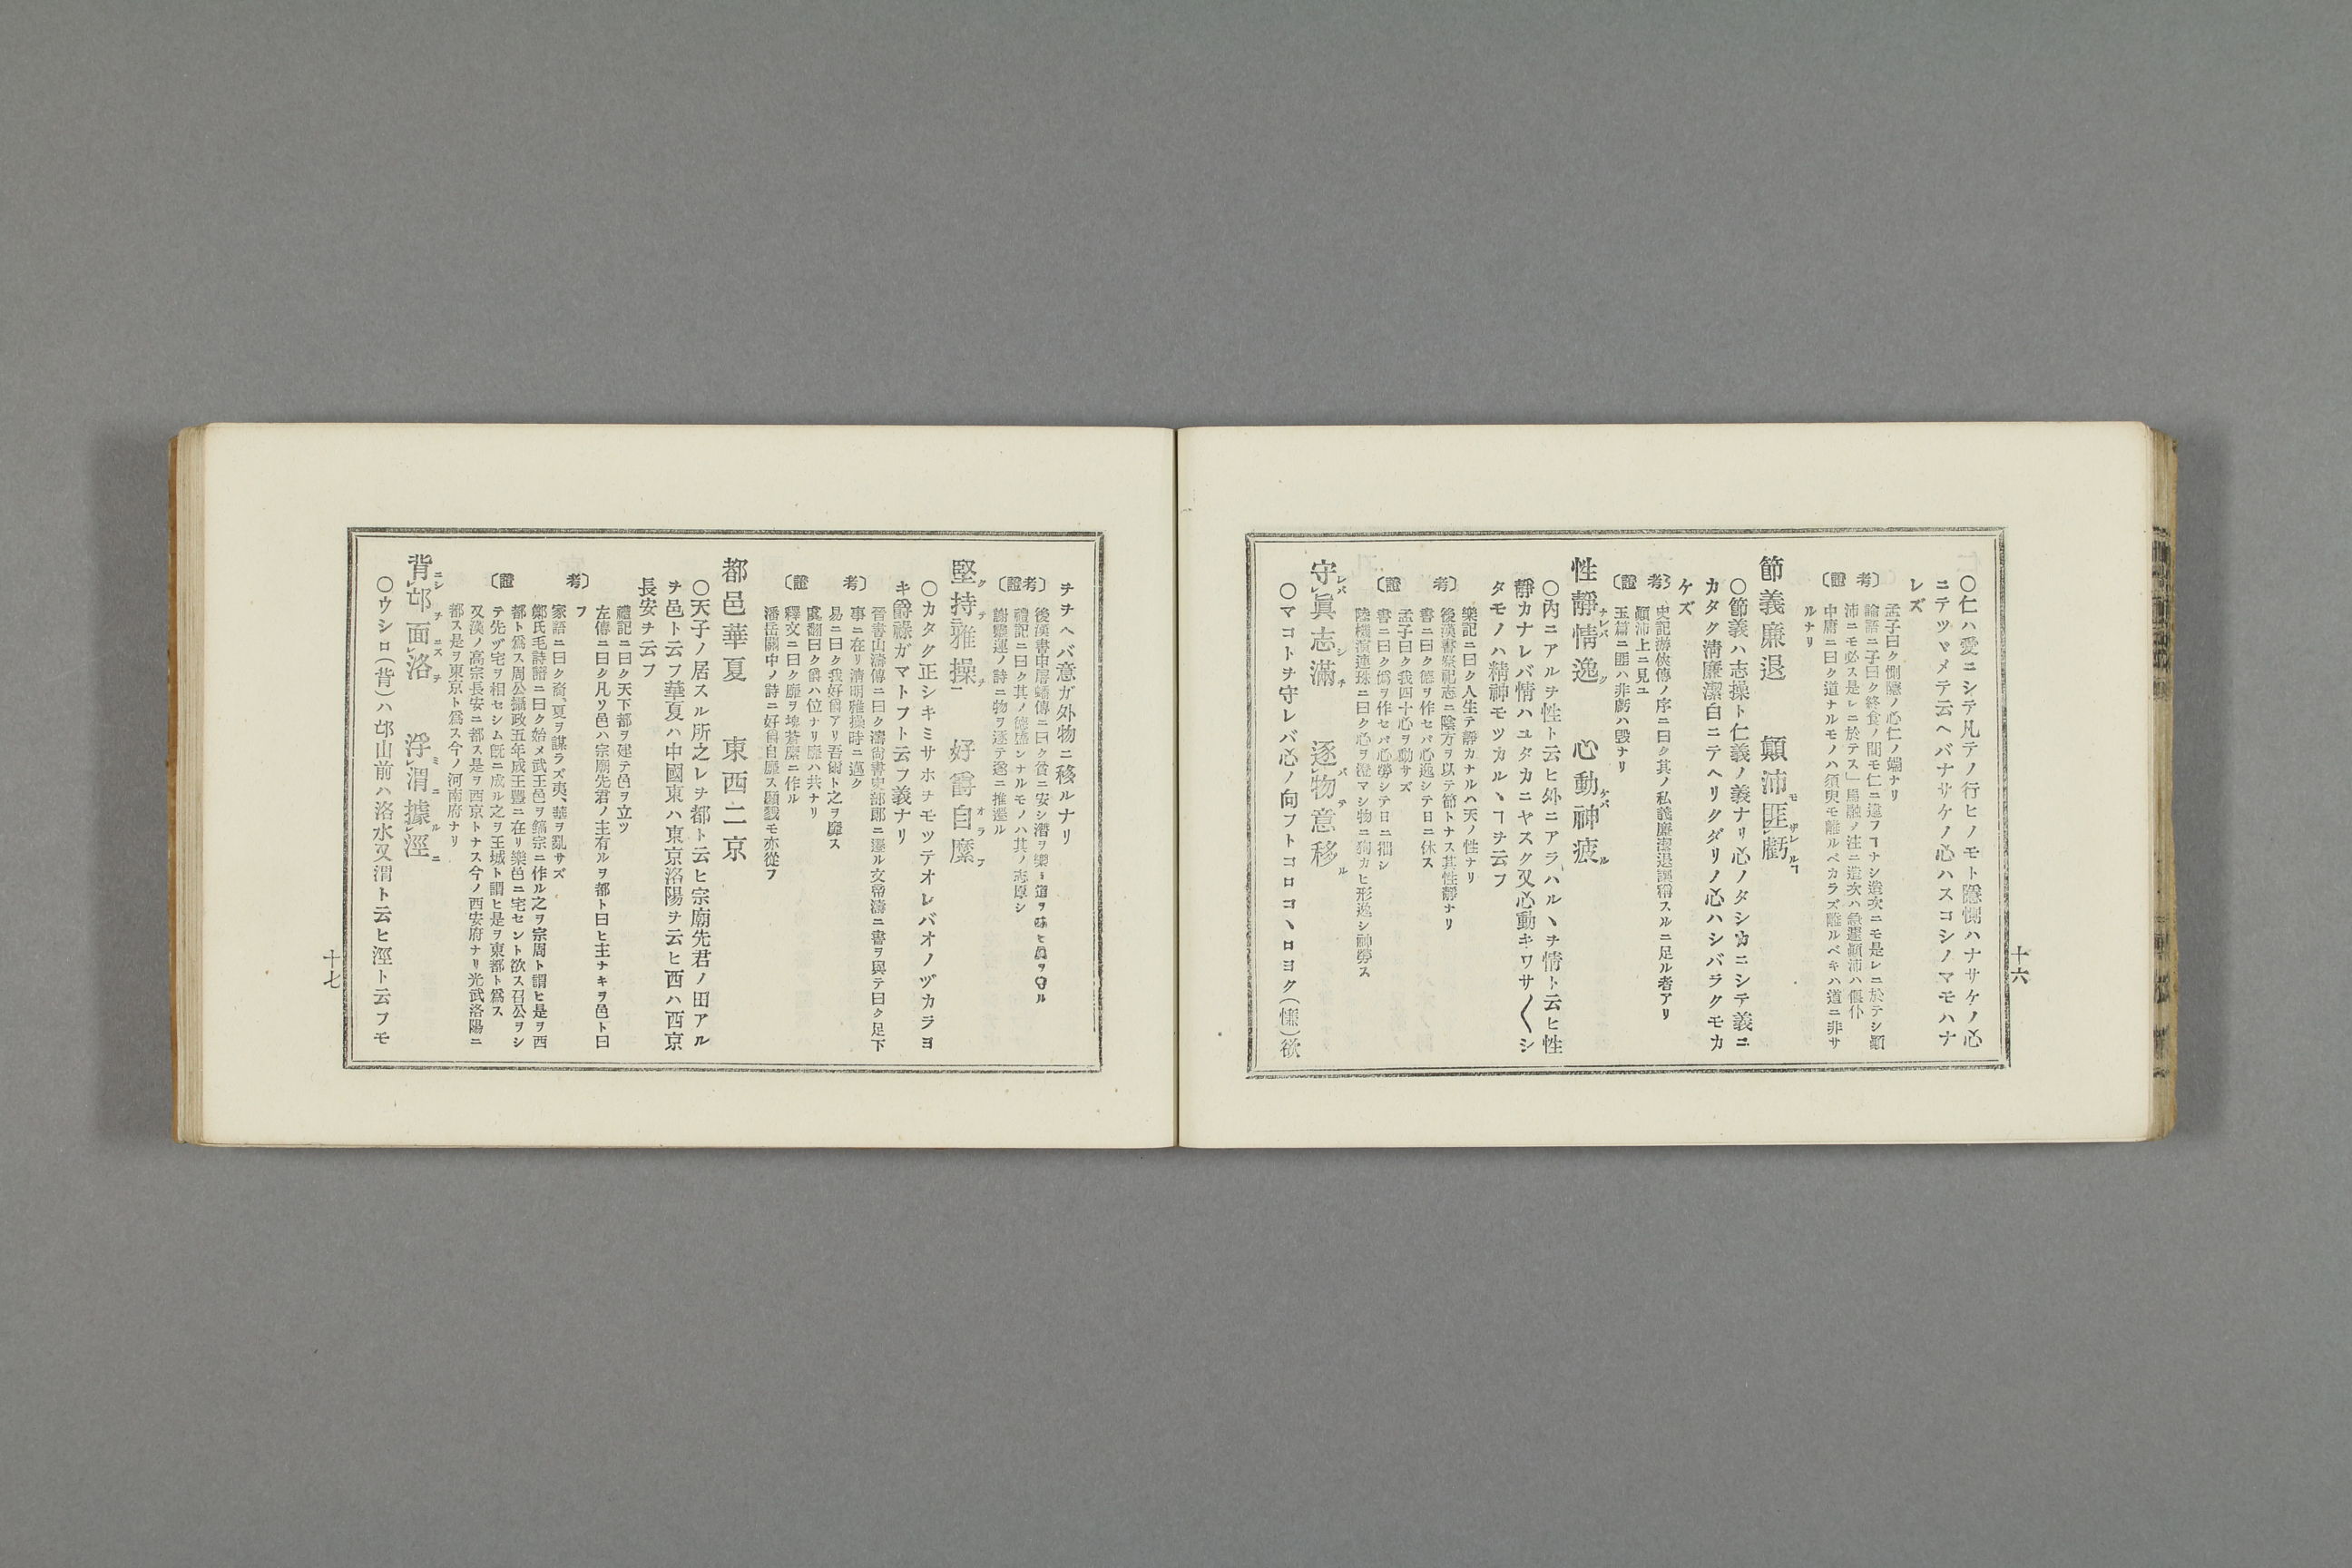 〇仁ハ愛ニシテ凡テノ行ヒノモト隱惻ハナサケノ心
ニテツヾメテ云ヘバナサケノ心ハスコシノマモハナ
レズ
孟子曰ク惻隱ノ心仁ノ端ナリ
〔考證〕
論語ニ子曰ク終食ノ間モ仁ニ違フヿナシ造次ニモ是レニ於テシ顚
沛ニモ必ス是レニ於テス」馬融ノ注ニ造次ハ急遽顚沛ハ偃仆
中庸ニ曰ク道ナルモノハ須臾モ離ルベカラズ離ルベキハ道ニ非サ
ルナリ
節義廉退 顚沛匪虧
〇節義ハ志操ト仁義ノ義ナリ心ノタシカニシテ義ニ
カタク淸廉潔白ニテヘリクダリノ心ハシバラクモカ
ケズ
〔考證〕
史記游俠傳ノ序ニ曰ク其ノ私義廉潔退讓稱スルニ足ル者アリ
顚沛上ニ見ユ
玉篇ニ匪ハ非虧ハ毀ナリ
性靜情逸 心動神疲
〇內ニアルヲ性ト云ヒ外ニアラハルヽヲ情ト云ヒ性
靜カナレバ情ハユタカニヤスク又心動キワサ〱シ
タモノハ精神モツカルヽヿヲ云フ
樂記ニ曰ク人生テ靜カナルハ天ノ性ナリ
〔考證〕
後漢書祭祀志ニ陰方ヲ以テ節トナス其性靜ナリ
書ニ曰ク德ヲ作セバ心逸シテ日ニ休ス
孟子曰ク我四十心ヲ動サズ
書ニ曰ク僞ヲ作セバ心勞シテ日ニ拙シ
陸機演連珠ニ曰ク心ヲ澄マシ物ニ狥カヒ形逸シ神勞ス
守眞志滿 逐物意移
〇マコトヲ守レバ心ノ向フトコロコヽロヨク(慊)欲
十六
ヲヲヘバ意ガ外物ニ移ルナリ
〔考證〕
後漢書申屠蟠傳ニ曰ク貧ニ安シ潛ヲ樂ミ道ヲ味ヒ眞ヲ守ル
禮記ニ曰ク其ノ德盛ンナルモノハ其ノ志厚シ
謝靈運ノ詩ニ物ヲ逐テ遂ニ推遷ル
堅持雅操 好爵自縻
〇カタク正シキミサホヲモツテオレバオノヅカラヨ
キ爵祿ガマトフト云フ義ナリ
〔考證〕
晉書山濤傳ニ曰ク濤尙書吏部郞ニ遷ル文帝濤ニ書ヲ與テ曰ク足下
事ニ在リ淸明雅操時ニ邁ク
易ニ曰ク我好爵アリ吾爾ト之ヲ靡ス
虞翻曰ク爵ハ位ナリ靡ハ共ナリ
釋文ニ曰ク靡ヲ埤蒼縻ニ作ル
潘岳關中ノ詩ニ好爵自縻ス顯戮モ亦從フ
都邑華夏 東西二京
〇天子ノ居スル所之レヲ都ト云ヒ宗廟先君ノ田アル
ヲ邑ト云フ華夏ハ中國東ハ東京洛陽ヲ云ヒ西ハ西京
長安ヲ云フ
禮記ニ曰ク天下都ヲ建テ邑ヲ立ツ
左傳ニ曰ク凡ソ邑ハ宗廟先君ノ主有ルヲ都ト曰ヒ主ナキヲ邑ト曰
フ
〔考證〕
家語ニ曰ク裔、夏ヲ謀ラズ夷、華ヲ亂サズ
鄭氏毛詩譜ニ曰ク始メ武王邑ヲ鎬宗ニ作ル之ヲ宗周ト謂ヒ是ヲ西
都ト爲ス周公攝政五年成王豐ニ在リ樂邑ニ宅セント欲ス召公ヲシ
テ先ヅ宅ヲ相セシム旣ニ成ル之ヲ王城ト謂ヒ是ヲ東都ト爲ス
又漢ノ高宗長安ニ都ス是ヲ西京トナス今ノ西安府ナリ光武洛陽ニ
都ス是ヲ東京ト爲ス今ノ河南府ナリ
背邙面洛 浮渭據涇
〇ウシロ(背)ハ邙山前ハ洛水又渭ト云ヒ涇ト云フモ
十七